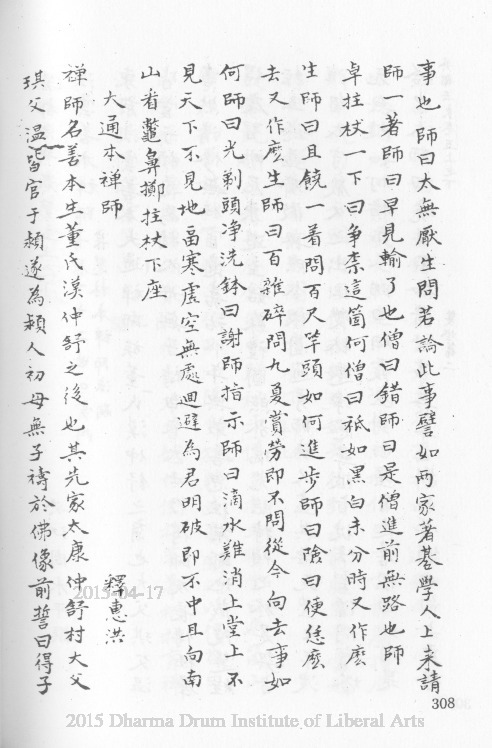 事也師曰太無厭生問若論此事譬如兩家著碁學人上来請
師一著師曰早見輸了也僧曰錯師曰是僧進前無路也師
卓拄杖一下曰争柰這箇何僧曰秪如黑白未分時又作麽
生師曰且饒一着問百尺竿頭如何進步師曰險曰便恁麽
去又作麽生師曰百雜碎問九夏賞勞即不問從今向去事如
何師曰光剃頭净洗鉢曰謝師指示師曰滴水難消上堂上不
見天下不見地畐寒虛空無處迴避為君明破即不中且向南
山看鼈鼻擲拄杖下座
大通本禪師
釋惠洪
禪師名善本生董氏漢仲舒之後也其先家太康仲舒村大父
琪父温皆官于頴遂為頴人初母無子禱於佛像前誓曰得子
308
2015-04-17
2015 Dharma Drum Institute of Liberal Arts